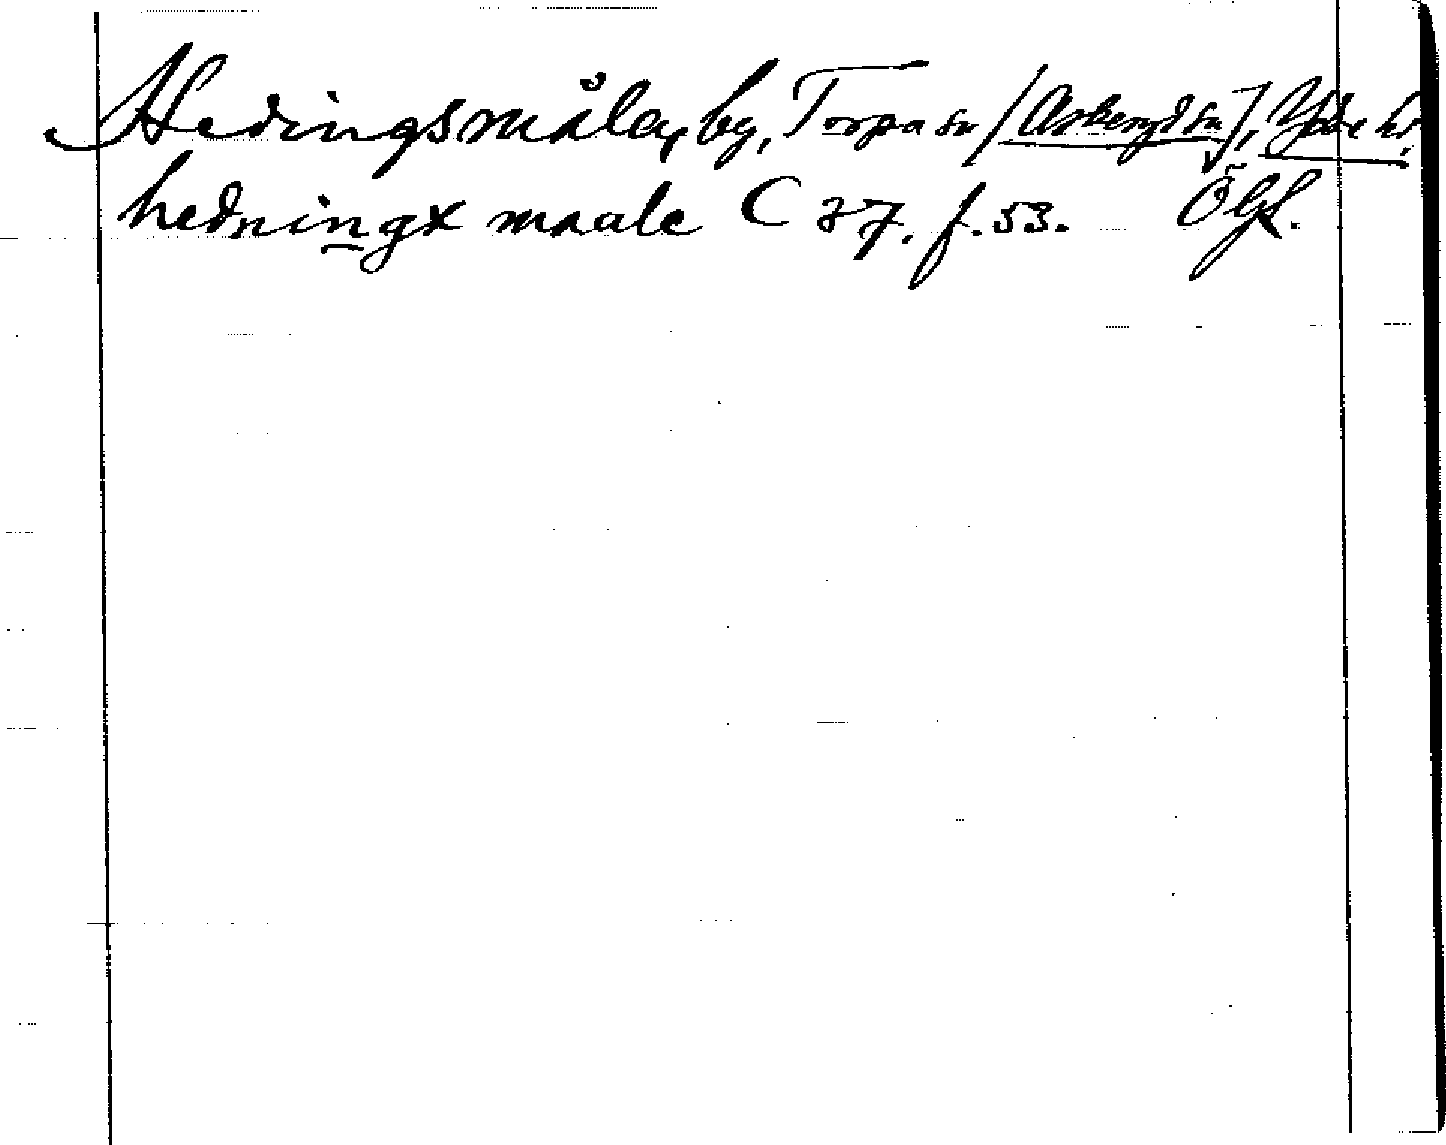 Hedingsmåla, by, Torpa sn [Asbergds sn], Ydre hd.
hedningx maale C 37, f. 53. Ögl.